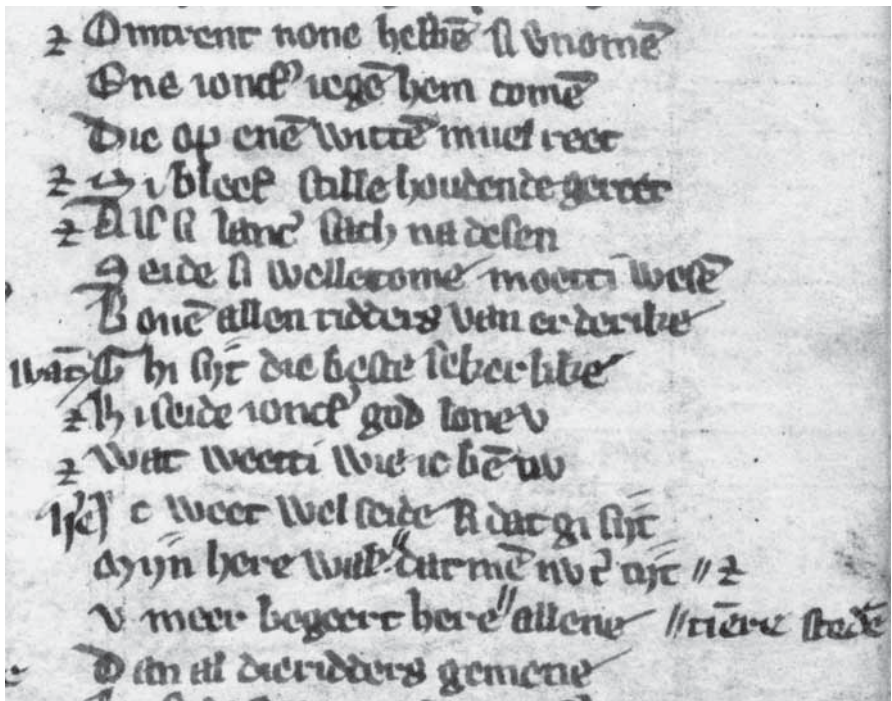 ⁊ Omtrent none hebbē si vnomē
Ene ioncf' iegē hem comē
Die op enē wittē muel reet
⁊ Hi bleef stille houdende gereet
⁊ Als si lanc' sach na desen
Seide si wellecome moetti wesē
Bouē allen ridders van erderike
wāt Ghi sijt die beste sekerlike
⁊ Hi seide ioncf' god lone v
⁊ Wat weetti wie ic bē nv
c weet wel seide si dat gi sijt
Mijn here wal' // dat mē nv t' tijt // ⁊
v meer begeert here // allene // tiēre stedē
Dan al die ridders gemene